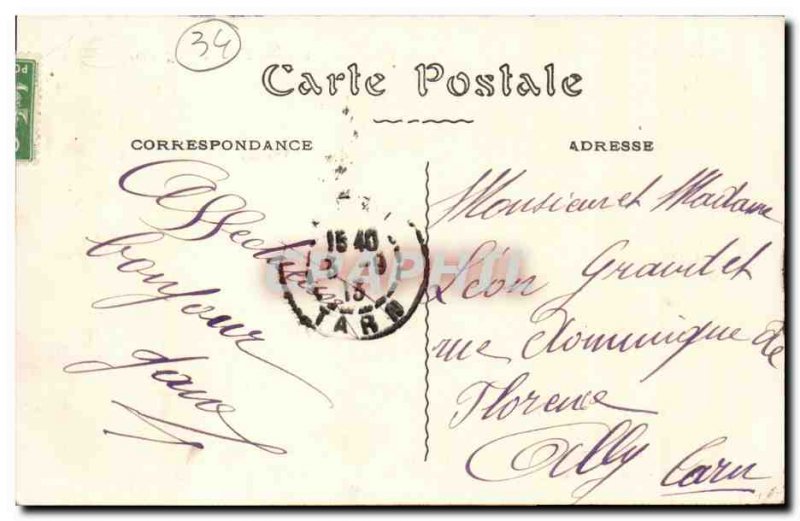 34
Carte Postale
CORRESPONDANCE
ADRESSE
Affectueux
bonjour
Monsieur et Madame
Léon Gravillet
rue Dominique de
Florence
Alby Tarn
15 40
13
TARN
CPAPHIL